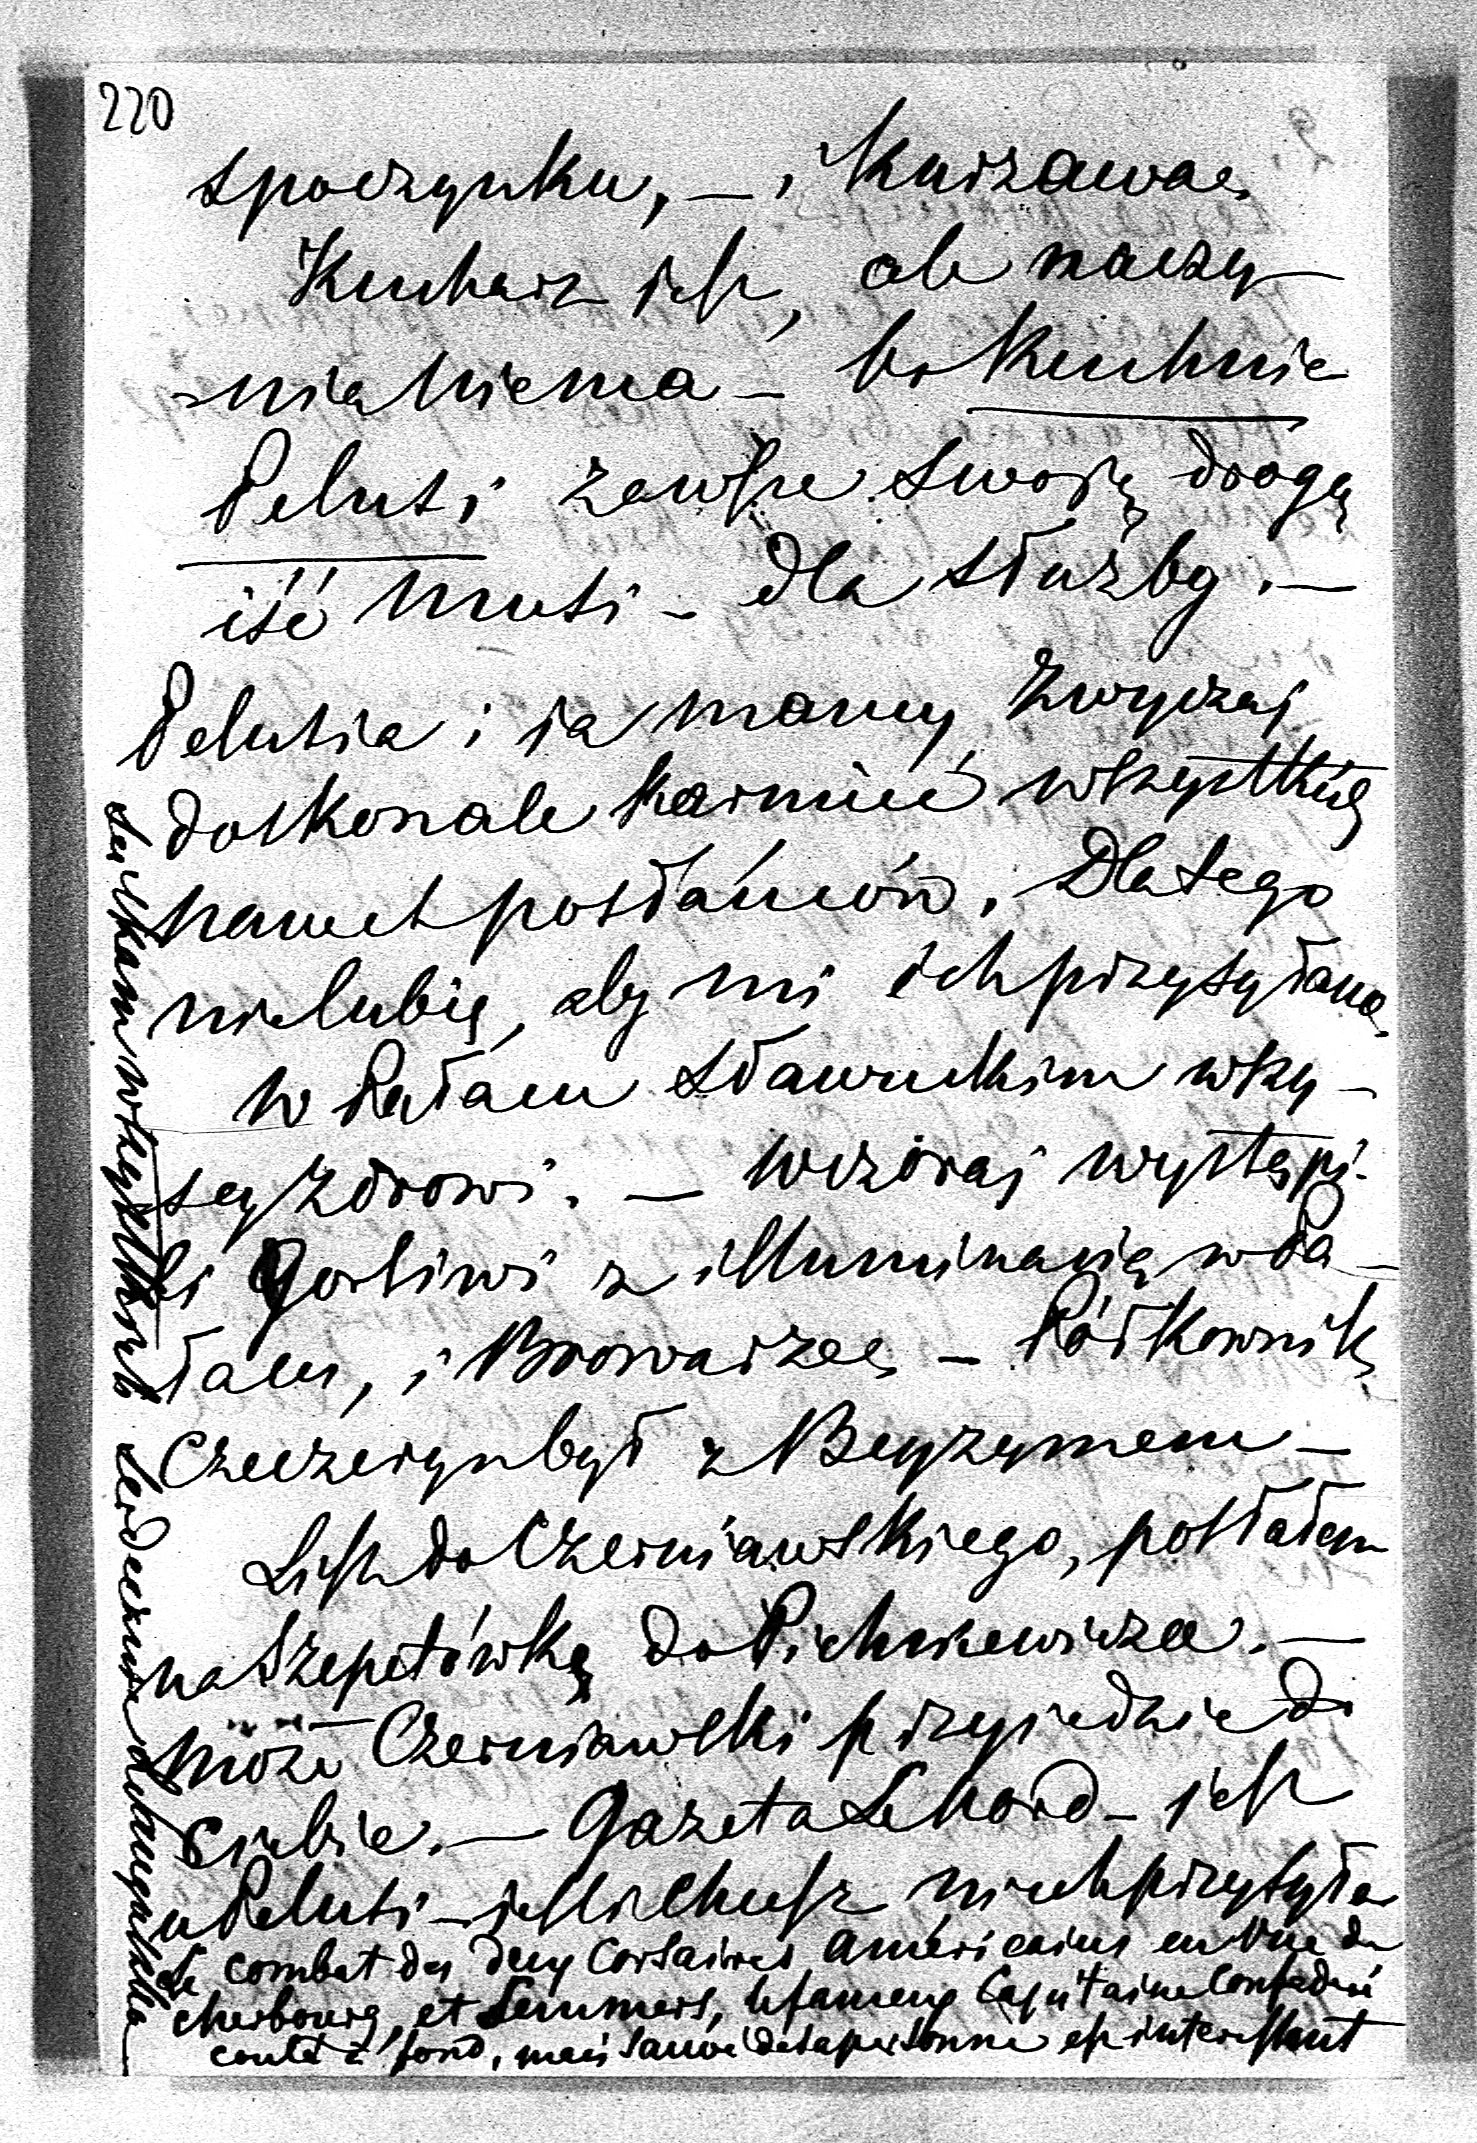 220
spoczynku, — i Kurzawa
Kucharz jest, ale naczy—
nia niema — bo Kuchnie
Pelusi zawsze swoją drogą
iść musi — dla służby. —
Pelusia i ja mamy zwyczaj
doskonale karmić wszystkich
nawet posłańców. Dlatego
nielubię, aby mi ich przysyłano.
W Pałacu Sławuckim wszy—
scy zdrowi. — Wczoraj wystąpi—
li Gorliwi z illuminacią w Pa—
łacu, i Browarze — Półkownik
Czeczeryn był z Beyzymem —
List do Czerniawskiego, posłałem
na Szepetówkę do Pichniewicza. —
może Czerniawski przyjedzie do
Ciebie. — Gazeta Le Nord — jest
u Pelusi — jeśli chcesz niech przysyła
Le combat des deux Corsaires américains en vue de
Cherbourg, et Semmers, le fameux Capitaine Confédéré
coulé à fond, mais sauvé de sa personne est interessant
Ściskam wszystkich serdecznie